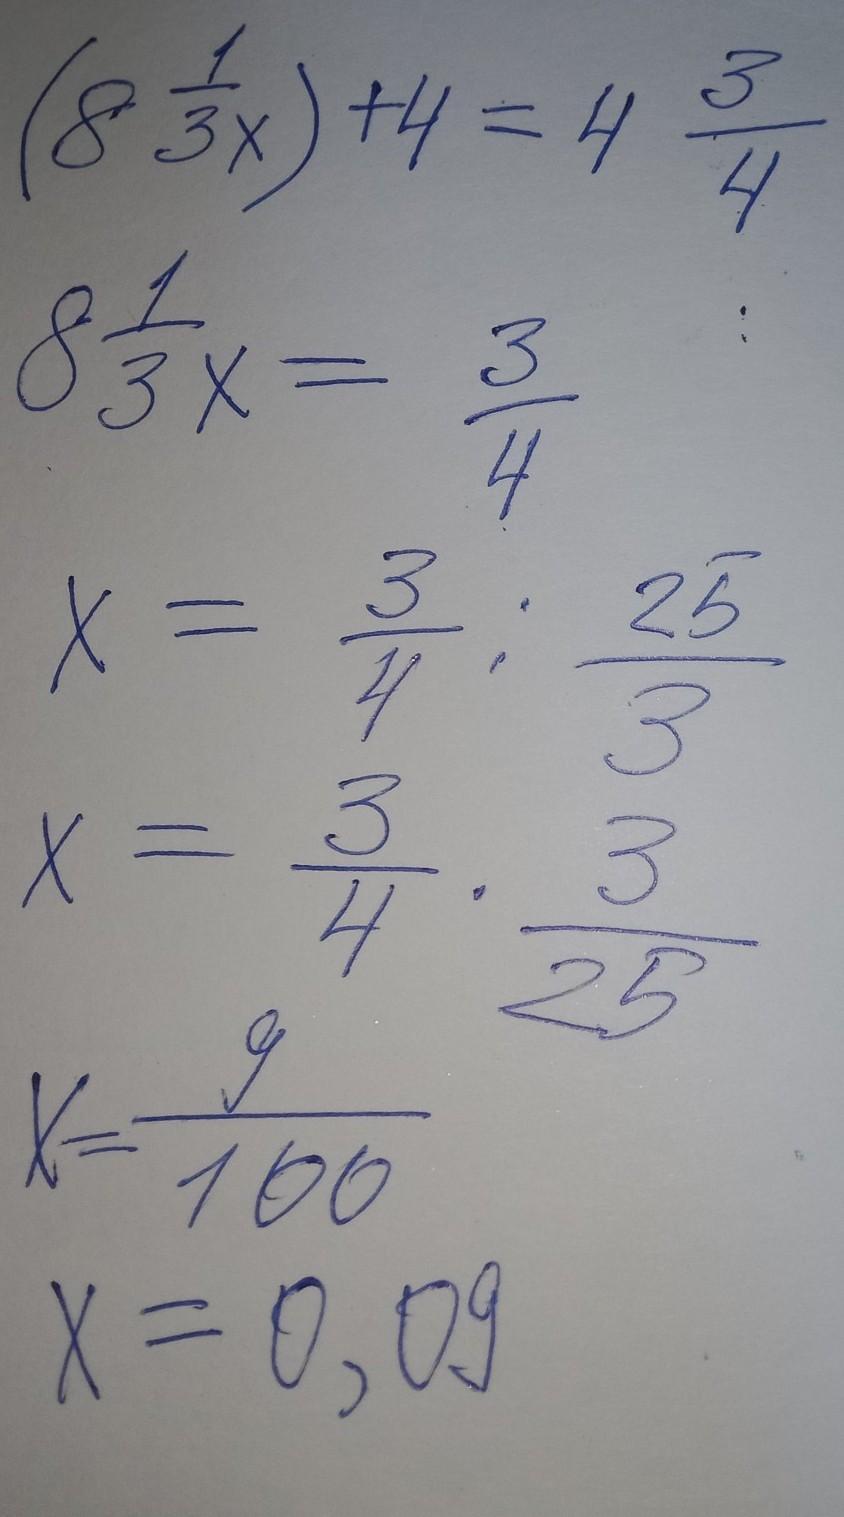 (8 1/3 x) + 4 = 4 3/4
8 1/3 x = 3/4
x = 3/4 : 25/3
x = 3/4 · 3/25
x = 9/100
x = 0,09